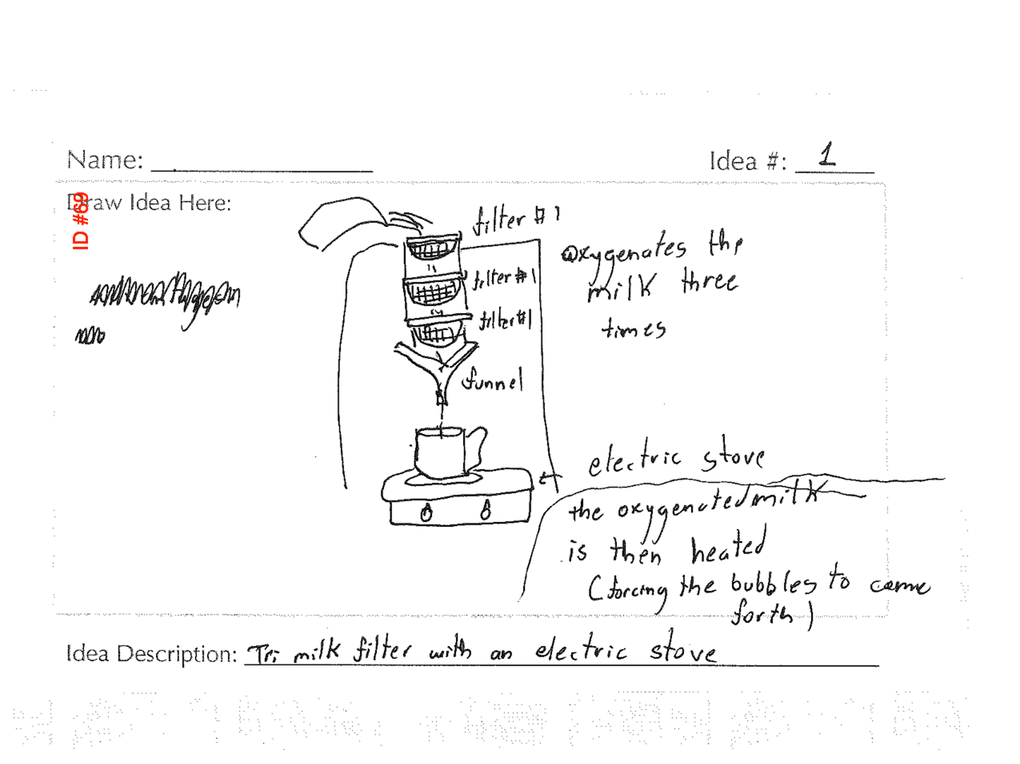 Name:
Idea #: 1
ID #69
Draw Idea Here:
filter #1
filter #1
filter #1
funnel
oxygenates the
milk three
times
electric stove
the oxygenated milk
is then heated
(forcing the bubbles to come
forth)
Idea Description: Tri milk filter with an electric stove